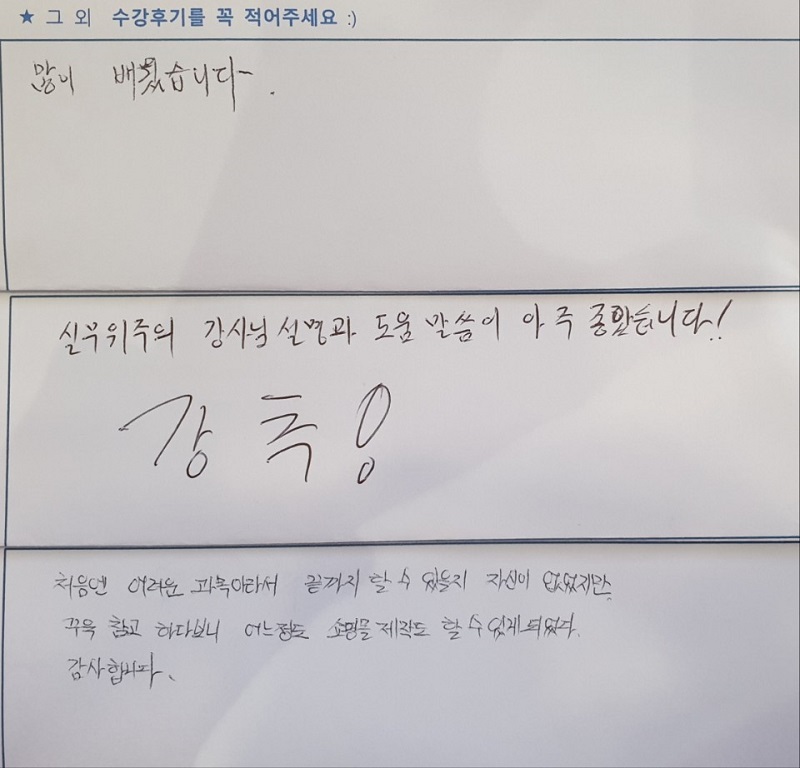 ★ 그 외 수강후기를 꼭 적어주세요 :)
많이 배웠습니다~.
실무위주의 강사님 설명과 도움 말씀이 아주 좋았습니다!!
강추!
처음엔 어려운 과목이라서 끝까지 할 수 있을지 자신이 없었지만
꾸욱 참고 하다보니 어느정도 쇼핑몰 제작도 할 수 있게 되었다.
감사합니다.